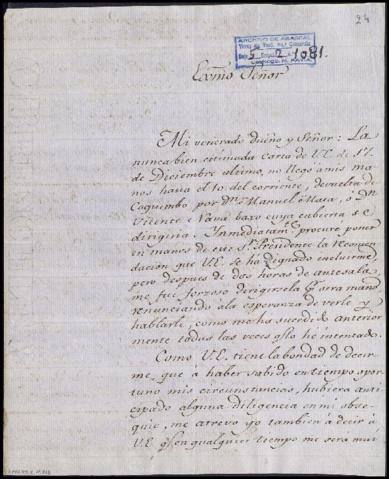 24
ARCHIVO DE ABASCAL
5 2 1081.
Exmo Señor
Mi venerado dueño y Señor: La
nunca bien estimada Carta de V.E. de 17.
de Diciembre ultimo, no llegó a mis ma
nos hasta el 10. del corriente, devuelta de
Coquimbo por Dn. Manuel Mata, o Dn.
Vicente Nava baxo cuya cubierta se
dirigiria. Inmediatamte. procuré poner
en manos de este Sr. Presidente la Recomen
dacion que V.E. se ha dignado incluirme,
pero despues de dos horas de antesala,
me fue forzoso dirigirsela pr. sera mano
renunciando à la esperanza de verle y
hablarle, como me ha sucedido anterior
mente todas las veces qe. lo he intentado.
Como V.E. tiene la bondad de decir
me, que à haber sabido en tiempo opor
tuno mis circunstancias, hubiera anti
cipado alguna diligencia en mi obse
quio, me atrevo yo tambien à decir à
V.E. qe. en qualquier tiempo me sera mui